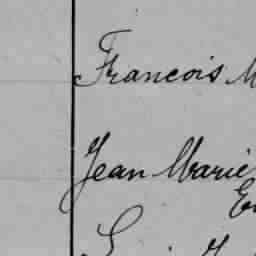 Francois M
Jean Marie